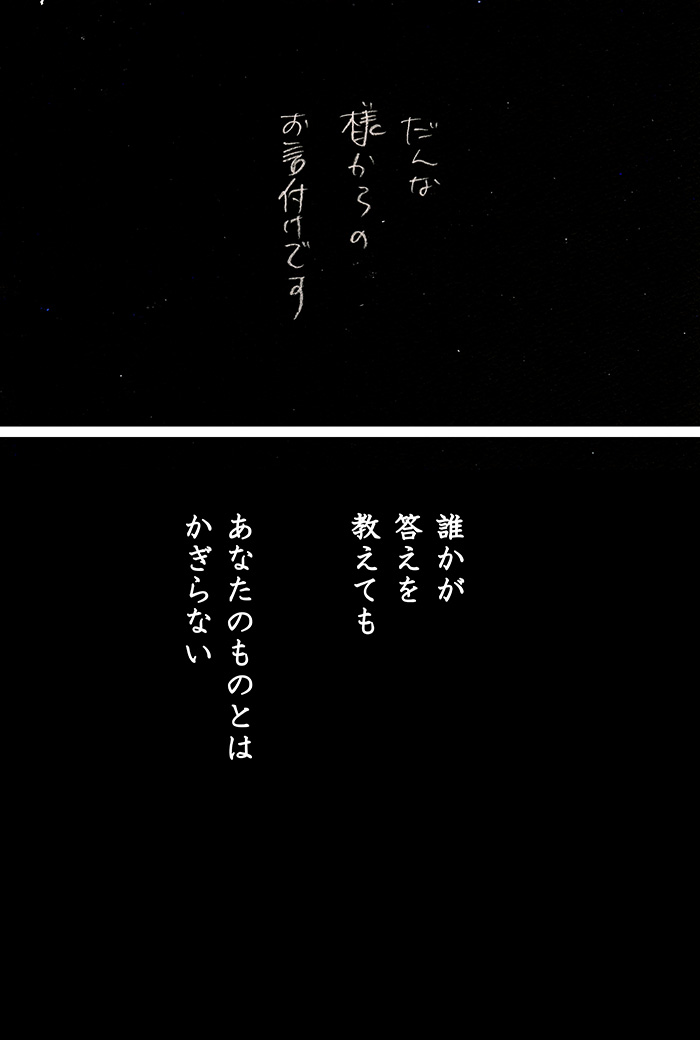 だんな
様からの
お言付けです
誰かが
答えを
教えても
あなたのものとは
かぎらない